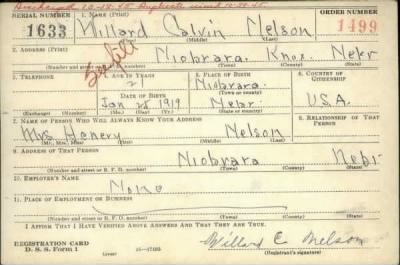 Discharged 12-14-45 Duplicate
SERIAL NUMBER 1. NAME (Print) ORDER NUMBER
1633 Willard Calvin Nelson 1499
(First) (Middle) (Last)
2. ADDRESS (Print)
Niobrara, Knox, Nebr
(Number and street or R. F. D. number) (Town) (County) (State)
3. TELEPHONE 4. AGE IN YEARS 5. PLACE OF BIRTH 6. COUNTRY OF CITIZENSHIP
21 Niobrara
DATE OF BIRTH (Town or county)
Jan 28 1919 Nebr. U.S.A.
(Exchange) (Number) (Mo.) (Day) (Yr.) (State or country)
7. NAME OF PERSON WHO WILL ALWAYS KNOW YOUR ADDRESS 8. RELATIONSHIP OF THAT PERSON
Mrs Henery Nelson
(Mr., Mrs., Miss) (First) (Middle) (Last)
9. ADDRESS OF THAT PERSON
Niobrara Nebr
(Number and street or R. F. D. number) (Town) (County) (State)
10. EMPLOYER'S NAME
None
11. PLACE OF EMPLOYMENT OR BUSINESS
(Number and street or R. F. D. number) (Town) (County) (State)
I AFFIRM THAT I HAVE VERIFIED ABOVE ANSWERS AND THAT THEY ARE TRUE.
REGISTRATION CARD Willard C Nelson
D. S. S. Form 1 (Registrant's signature)